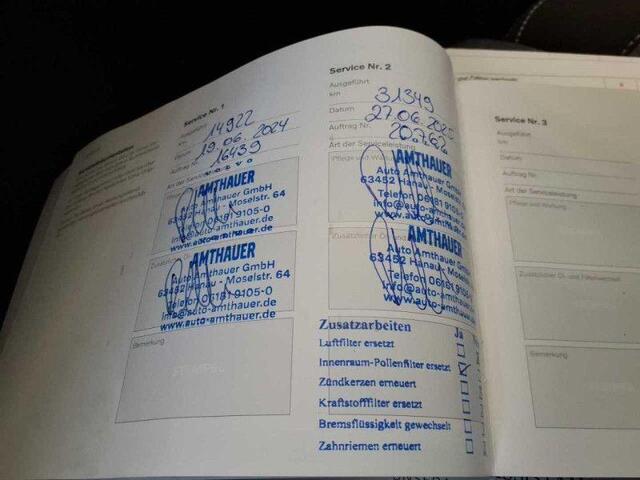 Service Nr. 1
Ausgeführt
km 14922
Datum 19.06.2024
Auftrag Nr. 16439
Art der Serviceleistung
VOLVO
AMTHAUER
Auto Amthauer GmbH
63452 Hanau - Moselstr. 64
Telefon 06181 9105-0
info@auto-amthauer.de
www.auto-amthauer.de
AMTHAUER
Auto Amthauer GmbH
63452 Hanau - Moselstr. 64
Telefon 06181 9105-0
info@auto-amthauer.de
www.auto-amthauer.de
Bemerkung
STEMPEL
Service Nr. 2
Ausgeführt
km 31349
Datum 27.06.2025
Auftrag Nr.
Art der Serviceleistung
Pflege und Wartung
AMTHAUER
Auto Amthauer GmbH
63452 Hanau - Moselstr.
Telefon 06181 9105-0
info@auto-amthauer
www.auto-amthauer
AMTHAUER
Auto Amthauer GmbH
63452 Hanau - Moselstr.
Telefon 06181 910
info@auto-amthauer
www.auto-amthauer
Zusatzarbeiten Ja
Luftfilter ersetzt
Innenraum-Pollenfilter ersetzt
Zündkerzen erneuert
Kraftstofffilter ersetzt
Bremsflüssigkeit gewechselt
Zahnriemen erneuert
Service Nr. 3
Ausgeführt
km
Datum
Auftrag Nr.
Art der Serviceleistung
Pflege und Wartung
Zusätzlicher Öl- und Filterwechsel
Bemerkung